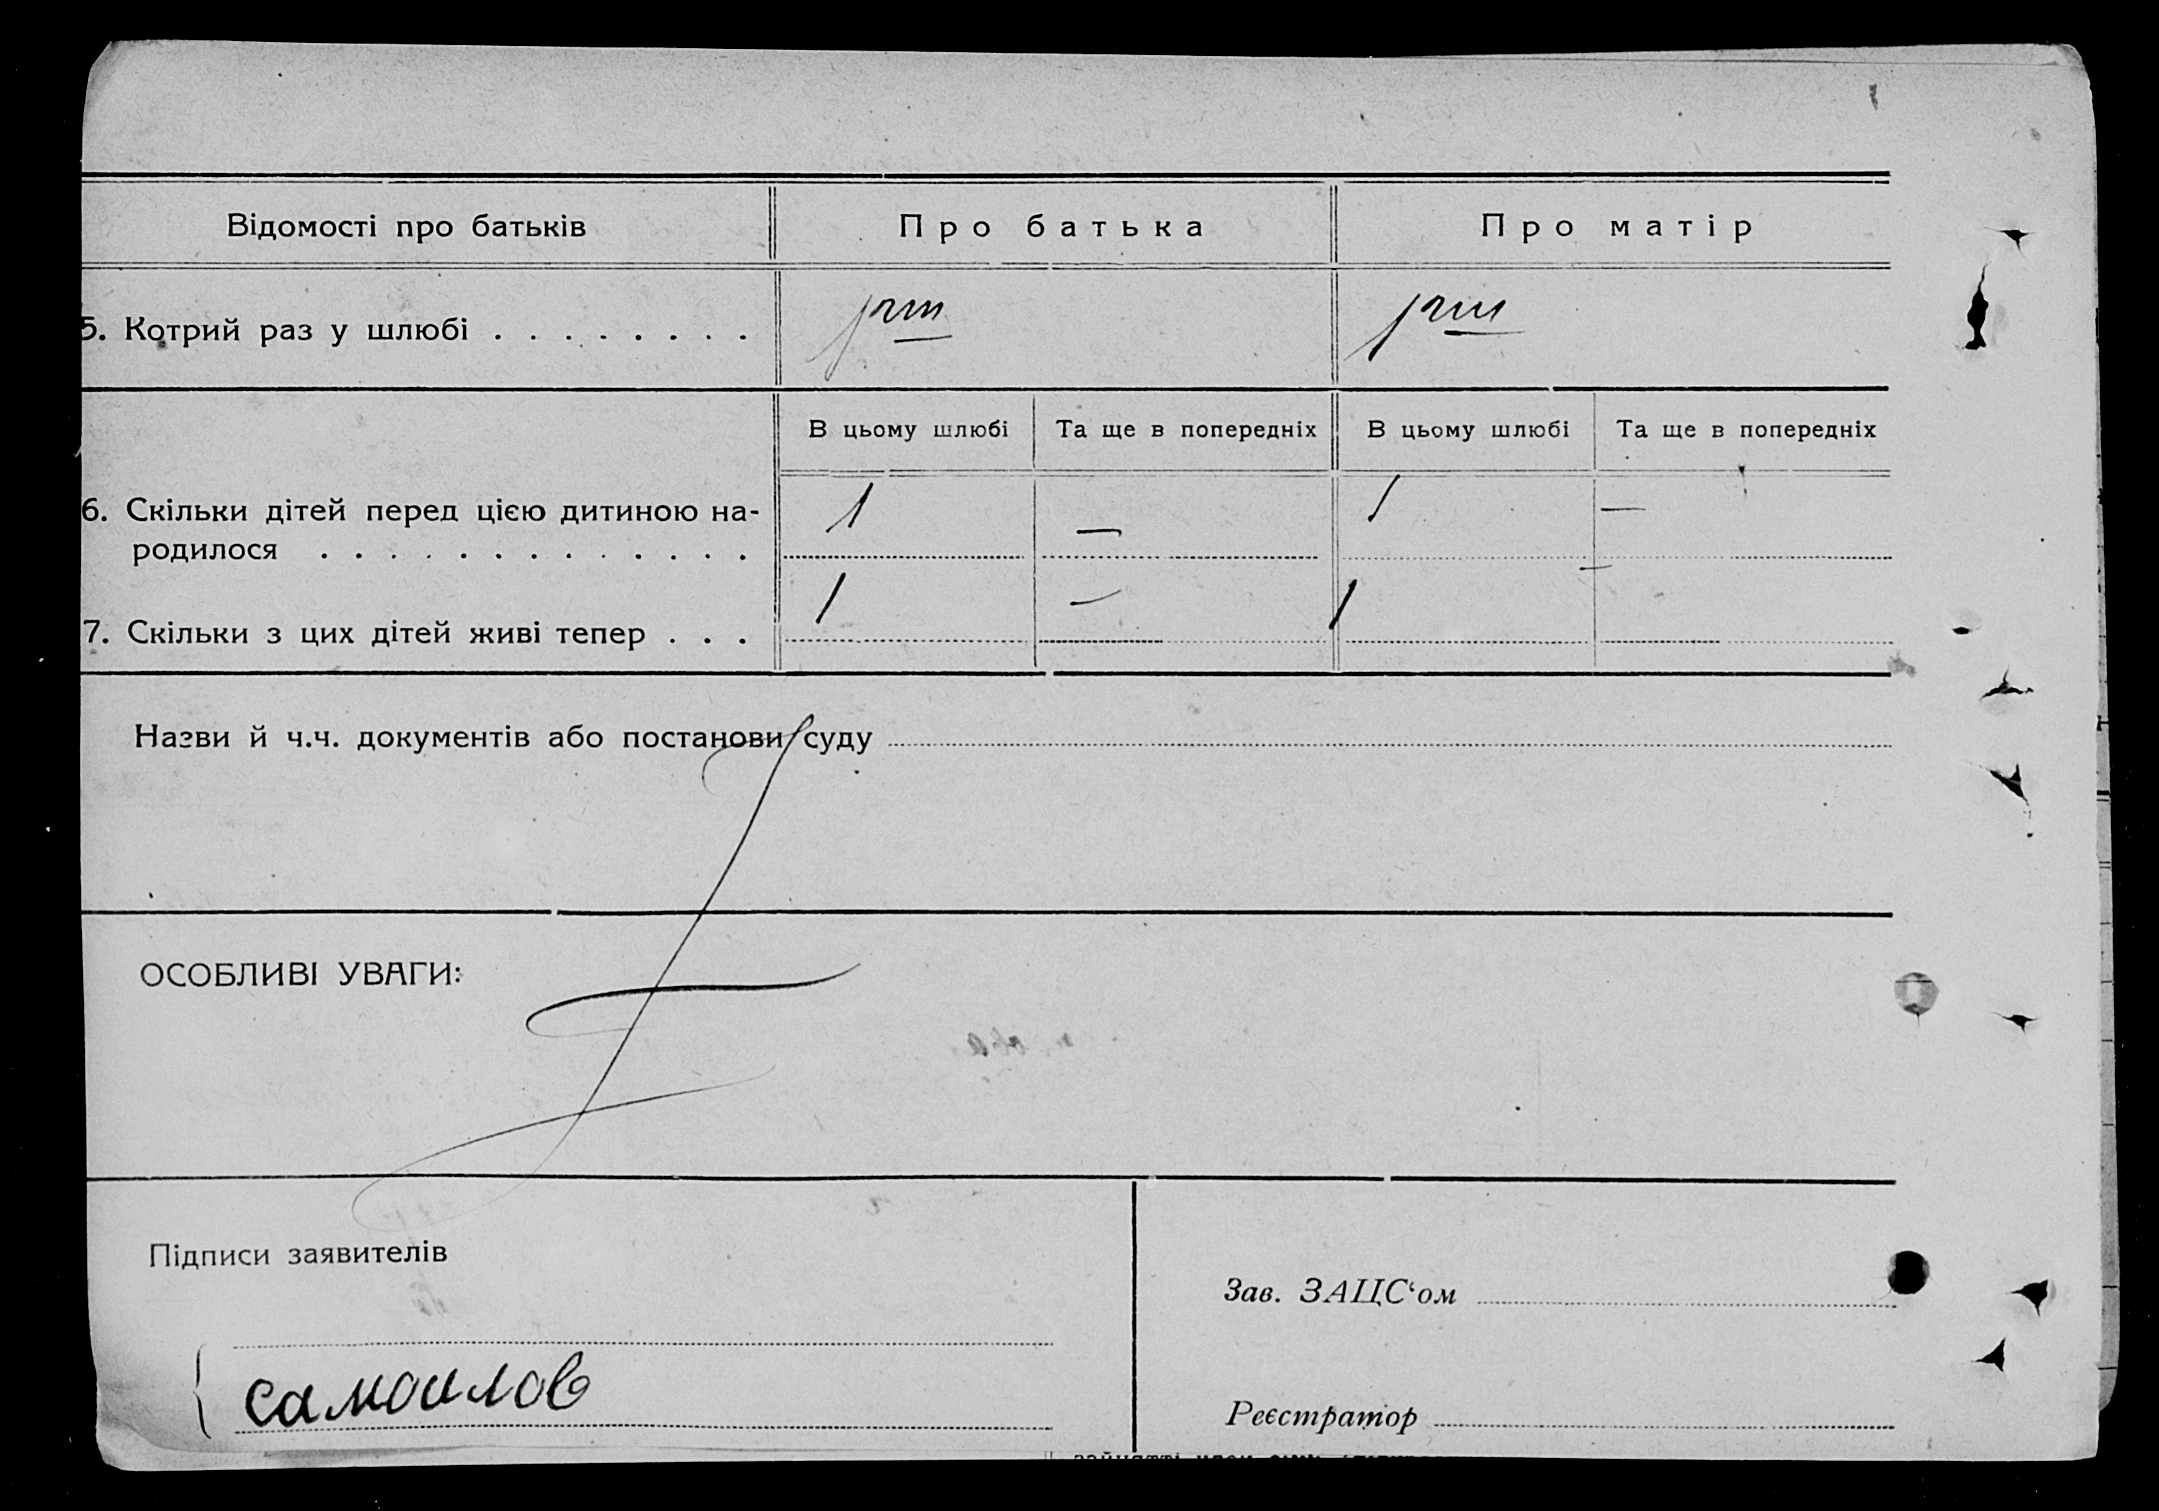 Відомості про батьків Про батька Про матір
5. Котрий раз у шлюбі . . . . . . . .
В цьому шлюбі Та ще в попередніх В цьому шлюбі Та ще в попередніх
6. Скільки дітей перед цією дитиною на- 1 — 1 —
родилося . . . . . . . . . . . . .
7. Скільки з цих дітей живі тепер . . . 1 — 1 —
Назви й ч.ч. документів або постанови суду
ОСОБЛИВІ УВАГИ:
Підписи заявителів
Зав. ЗАЦС‘ом
самоилов
Реєстратор